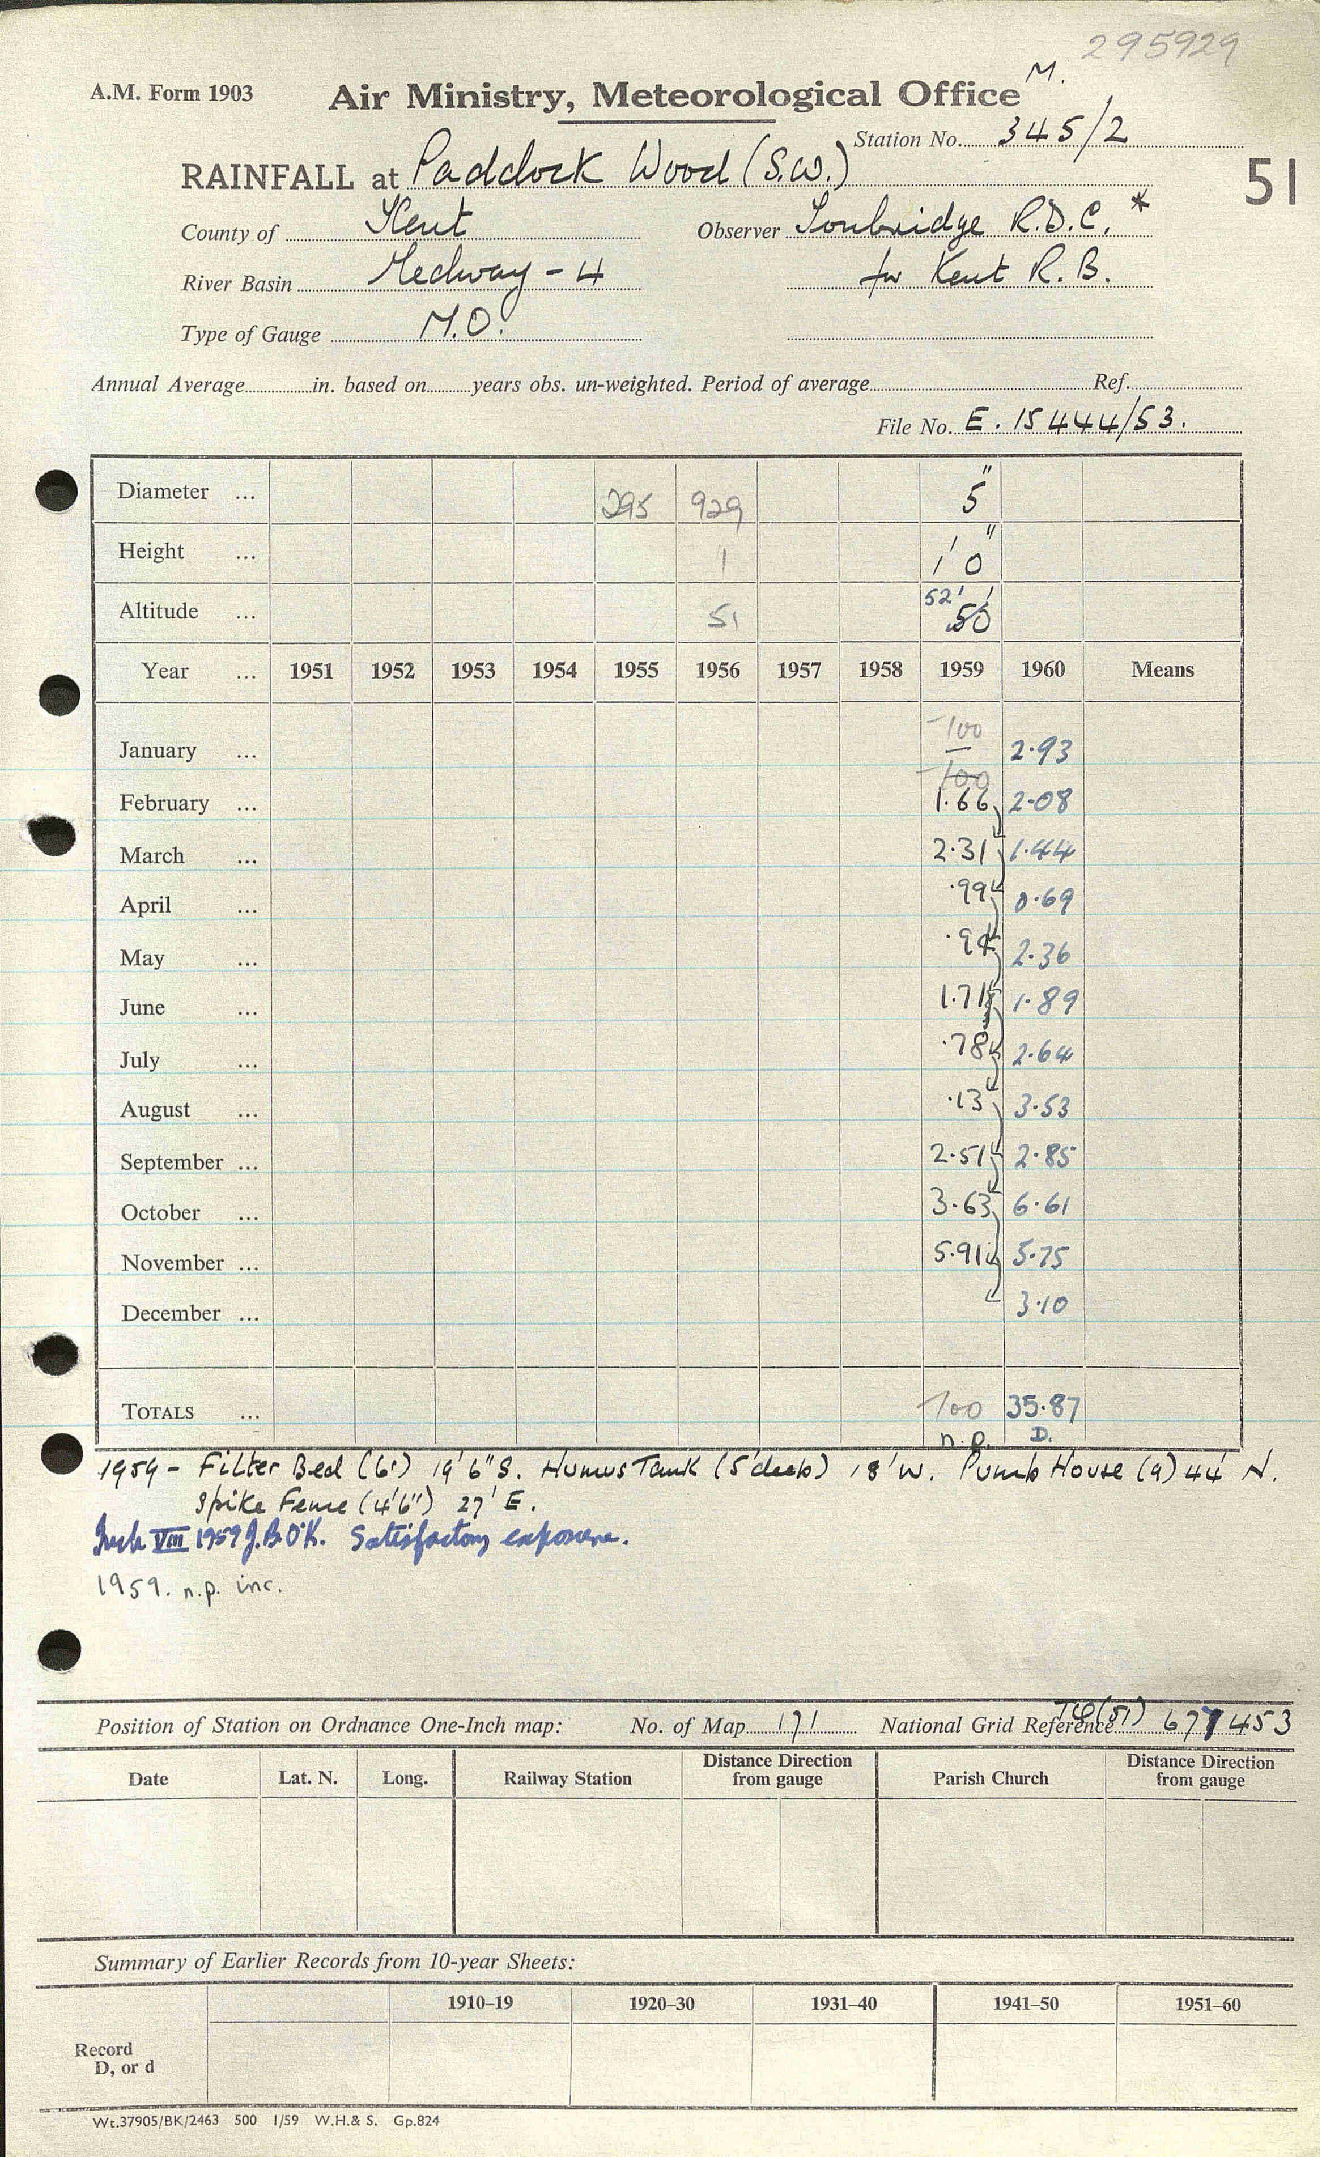 295929
A.M. Form 1903 Air Ministry, Meteorological Office M.
Station No. 345/2
RAINFALL at Paddock Wood (S.W.) 51
County of Kent Observer Tonbridge R.D.C. *
River Basin Medway - 4 for Kent R.B.
Type of Gauge M.O.
Annual Average in. based on years obs. un-weighted. Period of average Ref.
File No. E. 15444/53.
Diameter ... 295 929 5"
Height ... 1 1' 0"
Altitude ... 51 52' 50'
Year ... 1951 1952 1953 1954 1955 1956 1957 1958 1959 1960 Means
January ... -100 2.93
-100
February ... 1.66 2.08
March ... 2.31 1.44
April ... .99 0.69
May ... 2.36
June ... 1.71 1.89
July ... .78 2.64
August ... .13 3.53
September ... 2.51 2.85
October ... 3.63 6.61
November ... 5.91 5.75
December ... 3.10
TOTALS ... -100 35.87
n.p. D.
1959 - Filter Bed (6') 19'6" S. Humus Tank (5' deep) 18' W. Pump House (9) 44' N.
Spike Fence (4'6") 27' E.
Insp. VIII 1959 J.B.O'K. Satisfactory exposure.
1959. n.p. inc.
Position of Station on Ordnance One-Inch map: No. of Map 171 National Grid Reference TQ (51) 677453
Date Lat. N. Long. Railway Station Distance Direction from gauge Parish Church Distance Direction from gauge
Summary of Earlier Records from 10-year Sheets:
1910–19 1920–30 1931–40 1941–50 1951–60
Record
D, or d
Wt.37905/BK/2463 500 1/59 W.H.& S. Gp.824